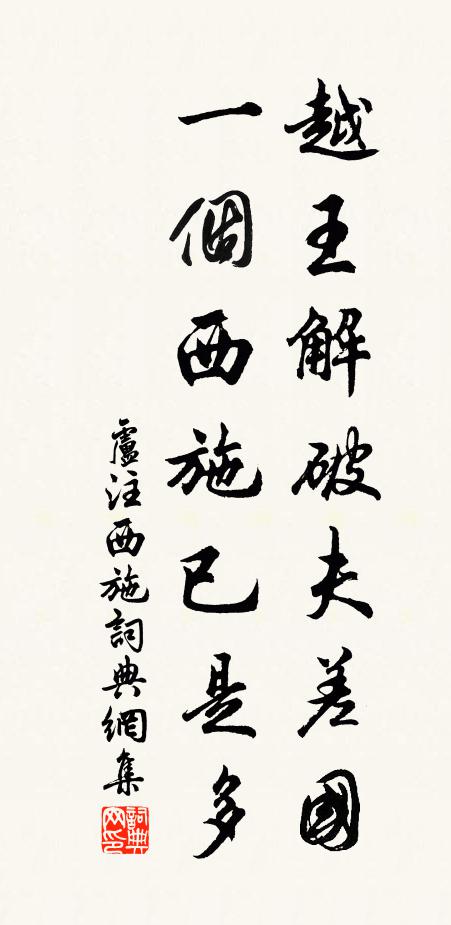 越王解破夫差國
一個西施已是多
盧注西施詞典網集
詞典网印